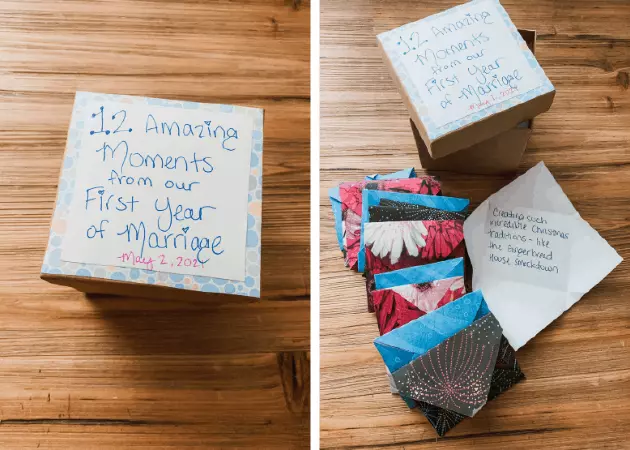 12 Amazing
Moments
from our
First Year
of Marriage
May 2, 2021
12 Amazing
Moments
from our
First Year
of Marriage
May 2, 2021
Creating such
incredible Christmas
traditions - like
the Gingerbread
House Smackdown